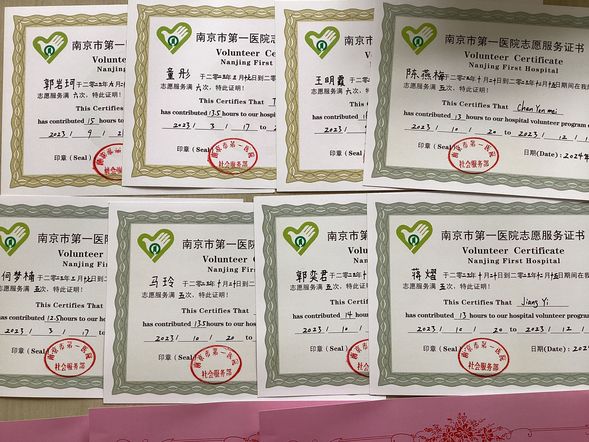 南京市第一医院
Volunteer
Nanjing
郭岩珂
志愿服务满 六次，特此证明！
This Certifies That
has contributed 15 hours to our
2023 / 9 /
印章 (Seal)
社会服务部
南京市第一医院志
Volunteer Ce
Nanjing First
童彤
志愿服务满 六次，特此证明！
This Certifies That
has contributed 13.5 hours to our hos
2023 / 3 / 17 to
印章 (Seal)
南京市第一医院
社会服务部
南京市第一医院
Volunteer
Nanjing
王明霞
志愿服务满 六次，特此证明！
This Certifies That
has contributed
2023 / 3 / 17
印章 (Seal)
南京市第一医院志愿服务证书
Volunteer Certificate
Nanjing First Hospital
陈燕梅
志愿服务满 五次，特此证明！
This Certifies That Chen Yanmei
has contributed 13 hours to our hospital volunteer program
2023 / 10 / 20 to 2023 / 12 /
印章 (Seal) 日期(Date): 2024年
南京市第一医院
社会服务部
南京市第一医
Volunt
Nanjing
何梦楠
志愿服务满 五次，特此证明！
This Certifies That
has contributed 12.5 hours to our
2023 / 3 / 17
印章 (Seal)
南京市第一医院
社会服务部
南京市第一医院
Volunteer
Nanjing Fi
马玲
志愿服务满 五次，特此证明！
This Certifies That
has contributed 13.5 hours to our
2023 / 10 / 20
印章 (Seal)
南京市第一医院
社会服务部
南京市第一医院
Volunt
Nanjing
郭奕君
志愿服务满 五次，特此证明！
This Certifies That
has contributed 14
2023 / 10 /
印章 (Seal)
南京市第一医院志愿服务证书
Volunteer Certificate
Nanjing First Hospital
蒋熠
志愿服务满 五次，特此证明！
This Certifies That Jiang Yi
has contributed 13 hours to our hospital volunteer progra
2023 / 10 / 20 to 2023 / 12
印章 (Seal) 日期(Date): 202
南京市第一医院
社会服务部